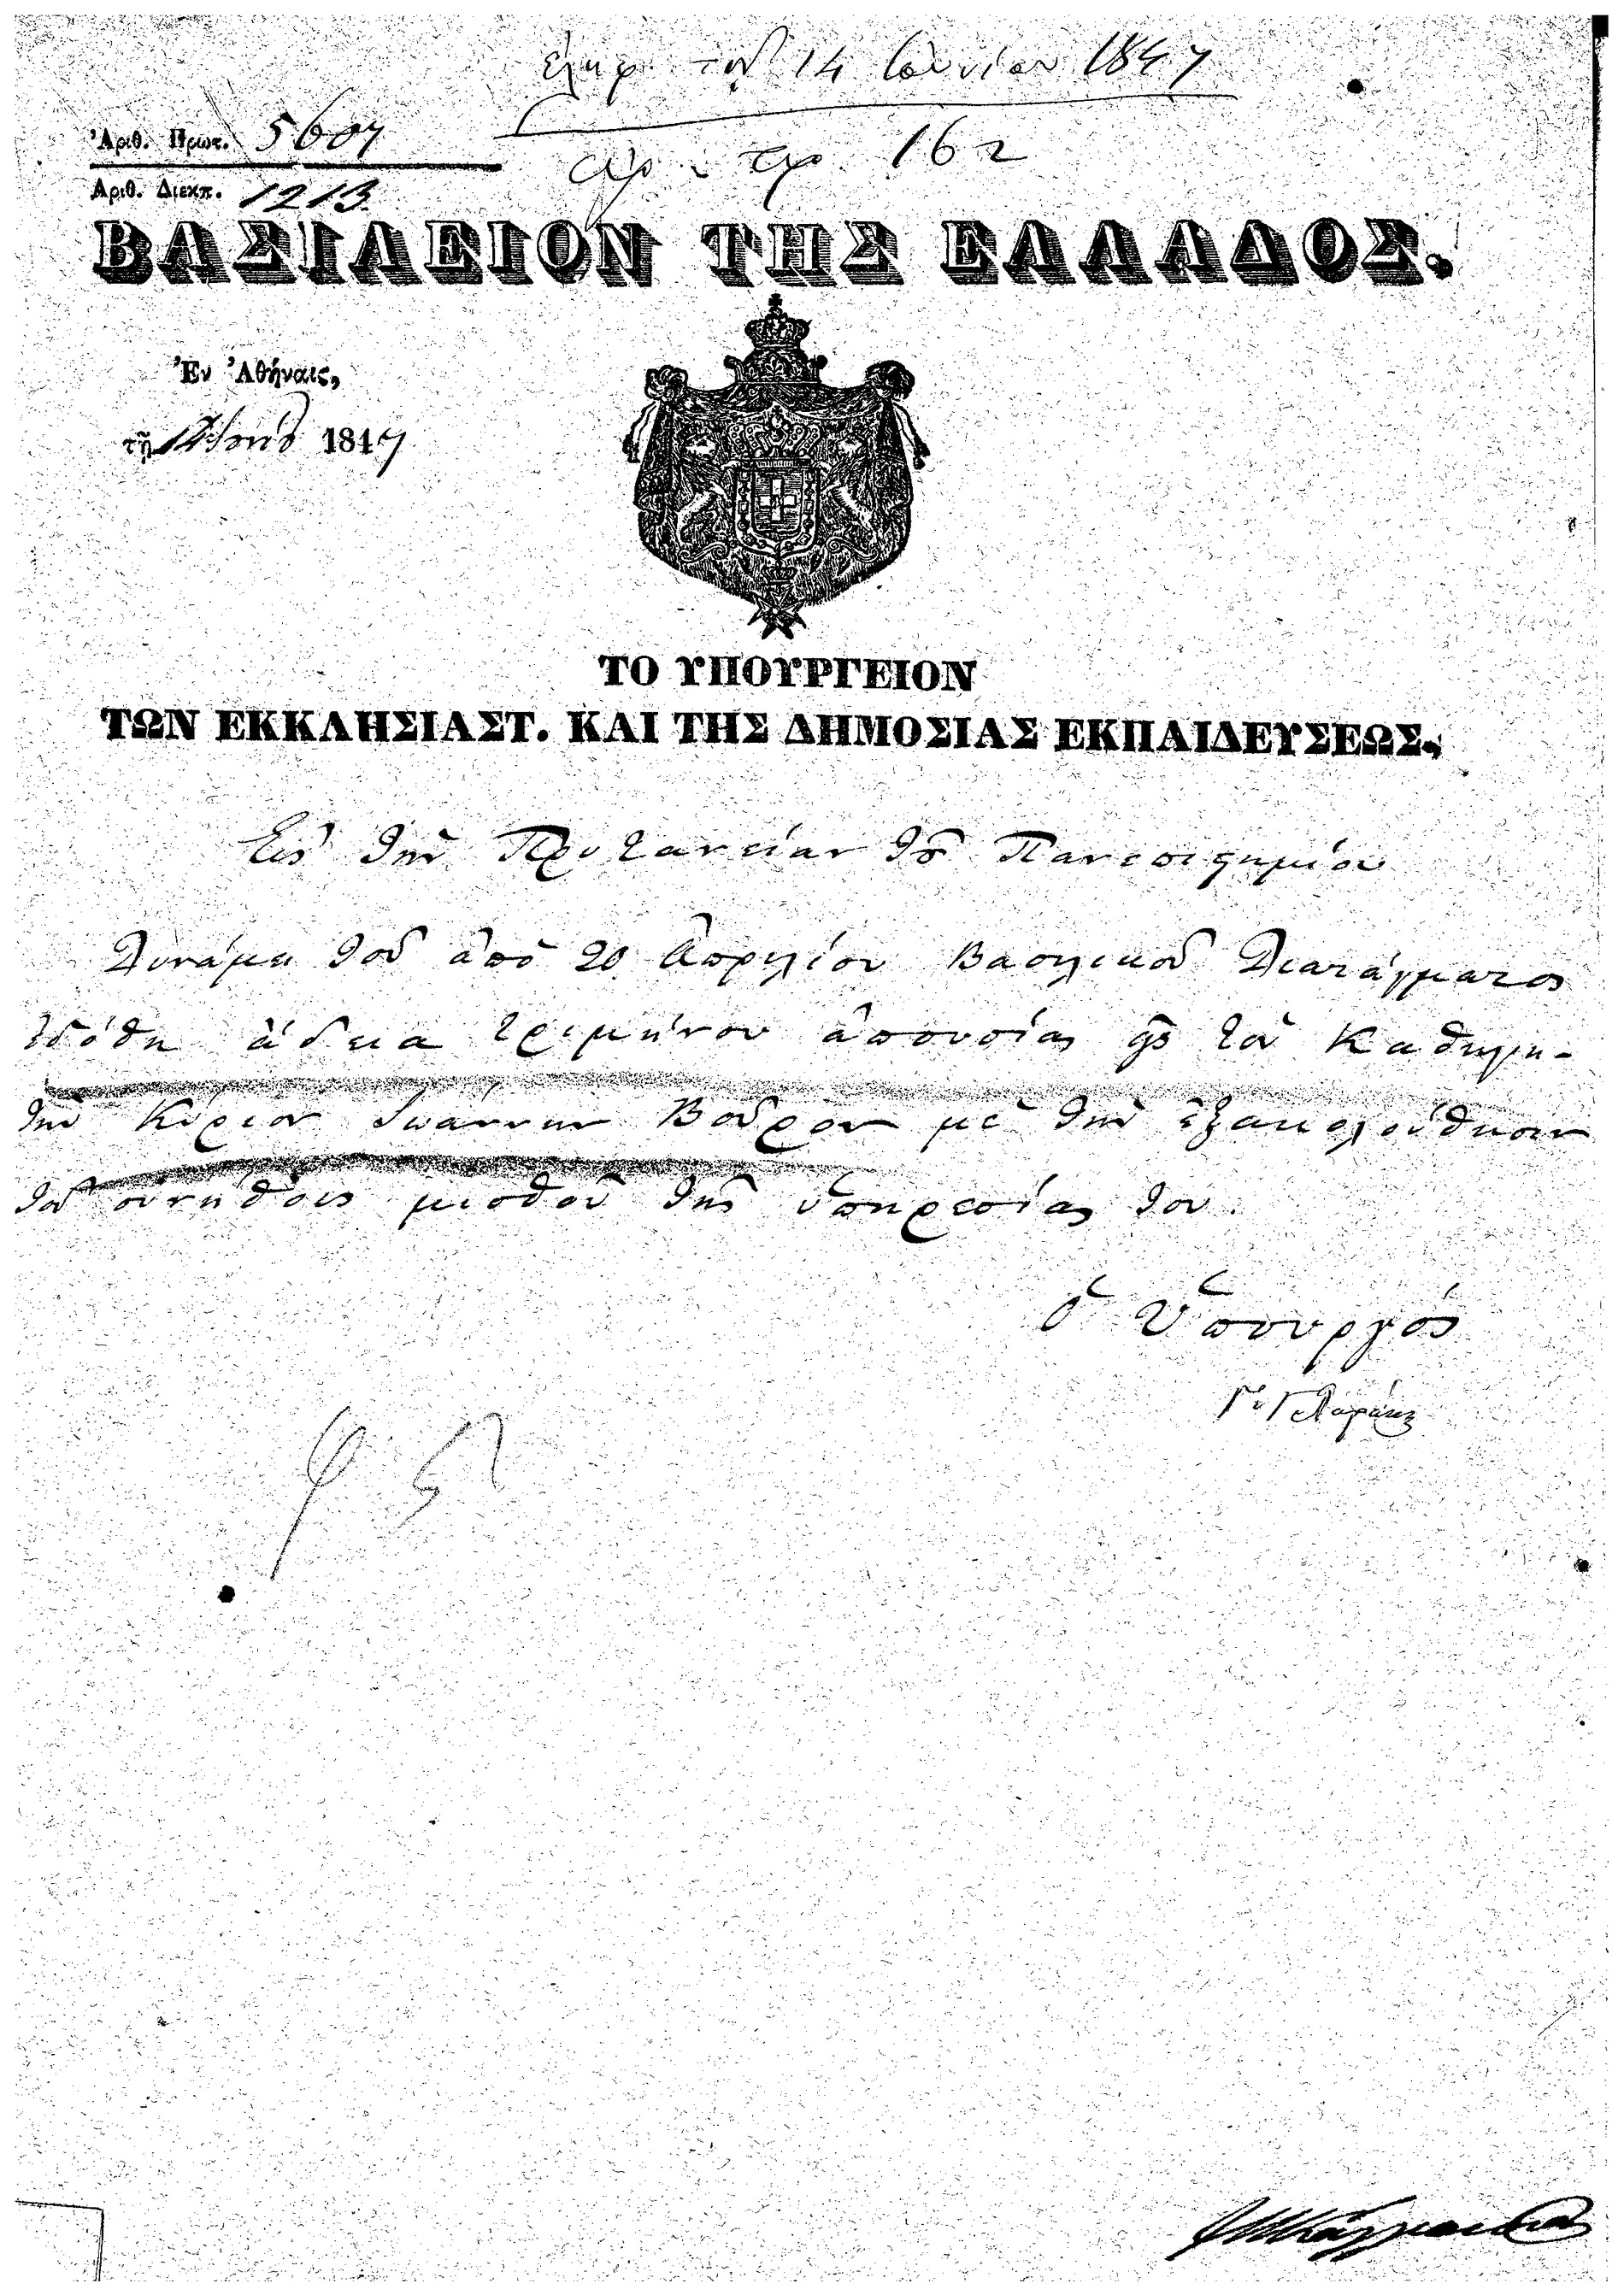 ἐλήφ. τῇ 14 Ἰουνίου 1847
Ἀριθ. Πρωτ. 5607
ἀρ. πρ. 162
Ἀριθ. Διεκπ. 1213
ΒΑΣΙΛΕΙΟΝ ΤΗΣ ΕΛΛΑΔΟΣ.
Ἐν Ἀθήναις,
τῇ 12 Ἰουνίου 1847
ΤΟ ΥΠΟΥΡΓΕΙΟΝ
ΤΩΝ ΕΚΚΛΗΣΙΑΣΤ. ΚΑΙ ΤΗΣ ΔΗΜΟΣΙΑΣ ΕΚΠΑΙΔΕΥΣΕΩΣ,
Εἰς τὴν Πρυτανείαν τοῦ Πανεπιστημίου
Δυνάμει τοῦ ἀπὸ 20 Ἀπριλίου Βασιλικοῦ Διατάγματος
ἐδόθη ἄδεια τριμήνου ἀπουσίας εἰς τὸν Καθηγη-
τὴν Κύριον Ἰωάννην Βοῦρον μὲ τὴν ἐξακολούθησιν
τοῦ συνήθους μισθοῦ τῆς ὑπηρεσίας του.
Ὁ Ὑπουργός